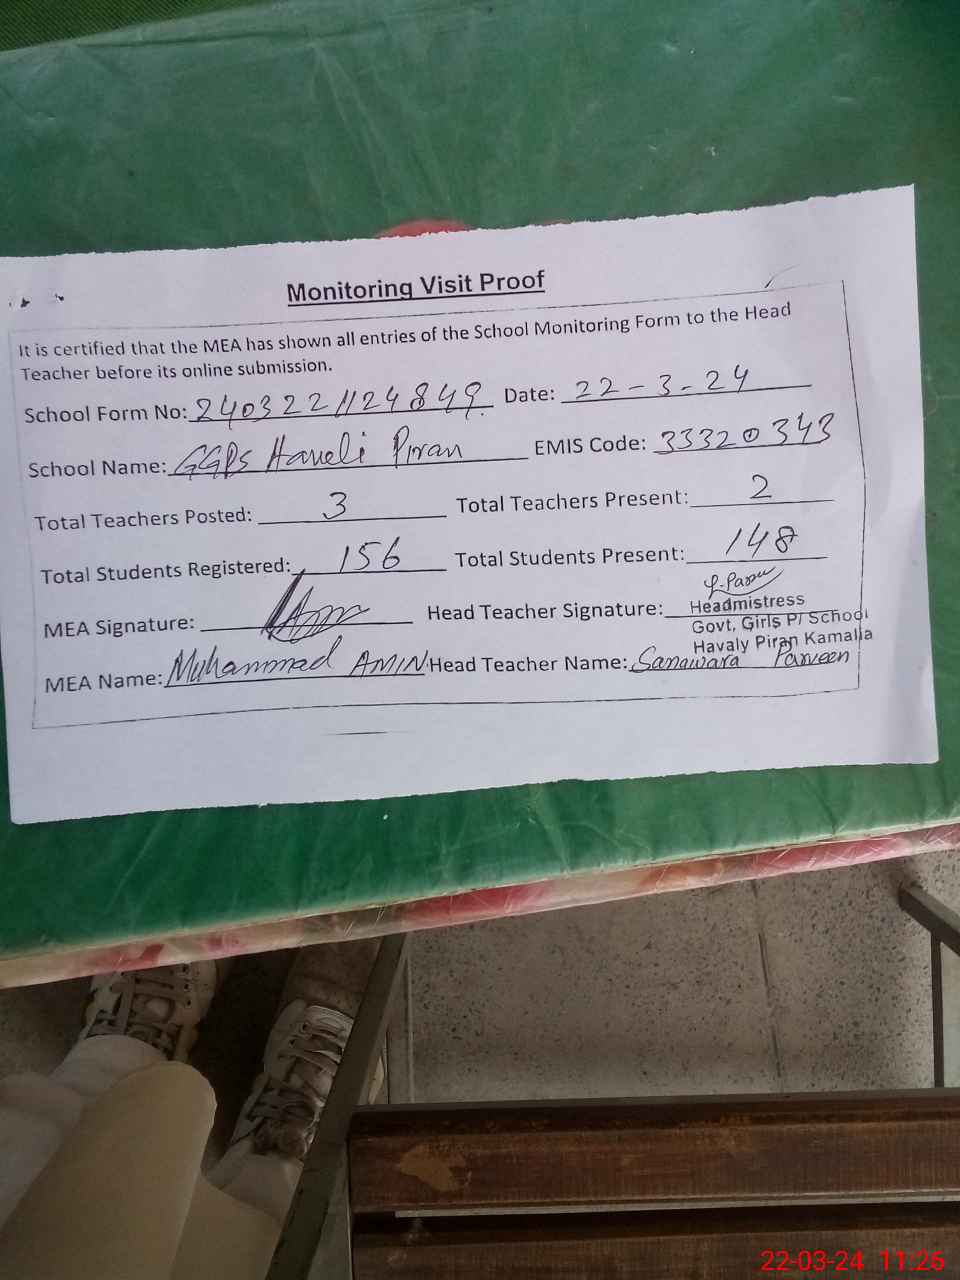 Monitoring Visit Proof
It is certified that the MEA has shown all entries of the School Monitoring Form to the Head
Teacher before its online submission.
School Form No: 2403221124849 Date: 22-3-24
School Name: GGPS Haveli Piran EMIS Code: 33320343
Total Teachers Posted: 3 Total Teachers Present: 2
Total Students Registered: 156 Total Students Present: 148
MEA Signature: Head Teacher Signature:
Headmistress
Govt, Girls P/ School
Havaly Piran Kamalia
MEA Name: Muhammad AMIN Head Teacher Name: Sanawara Parveen
22-03-24 11:26